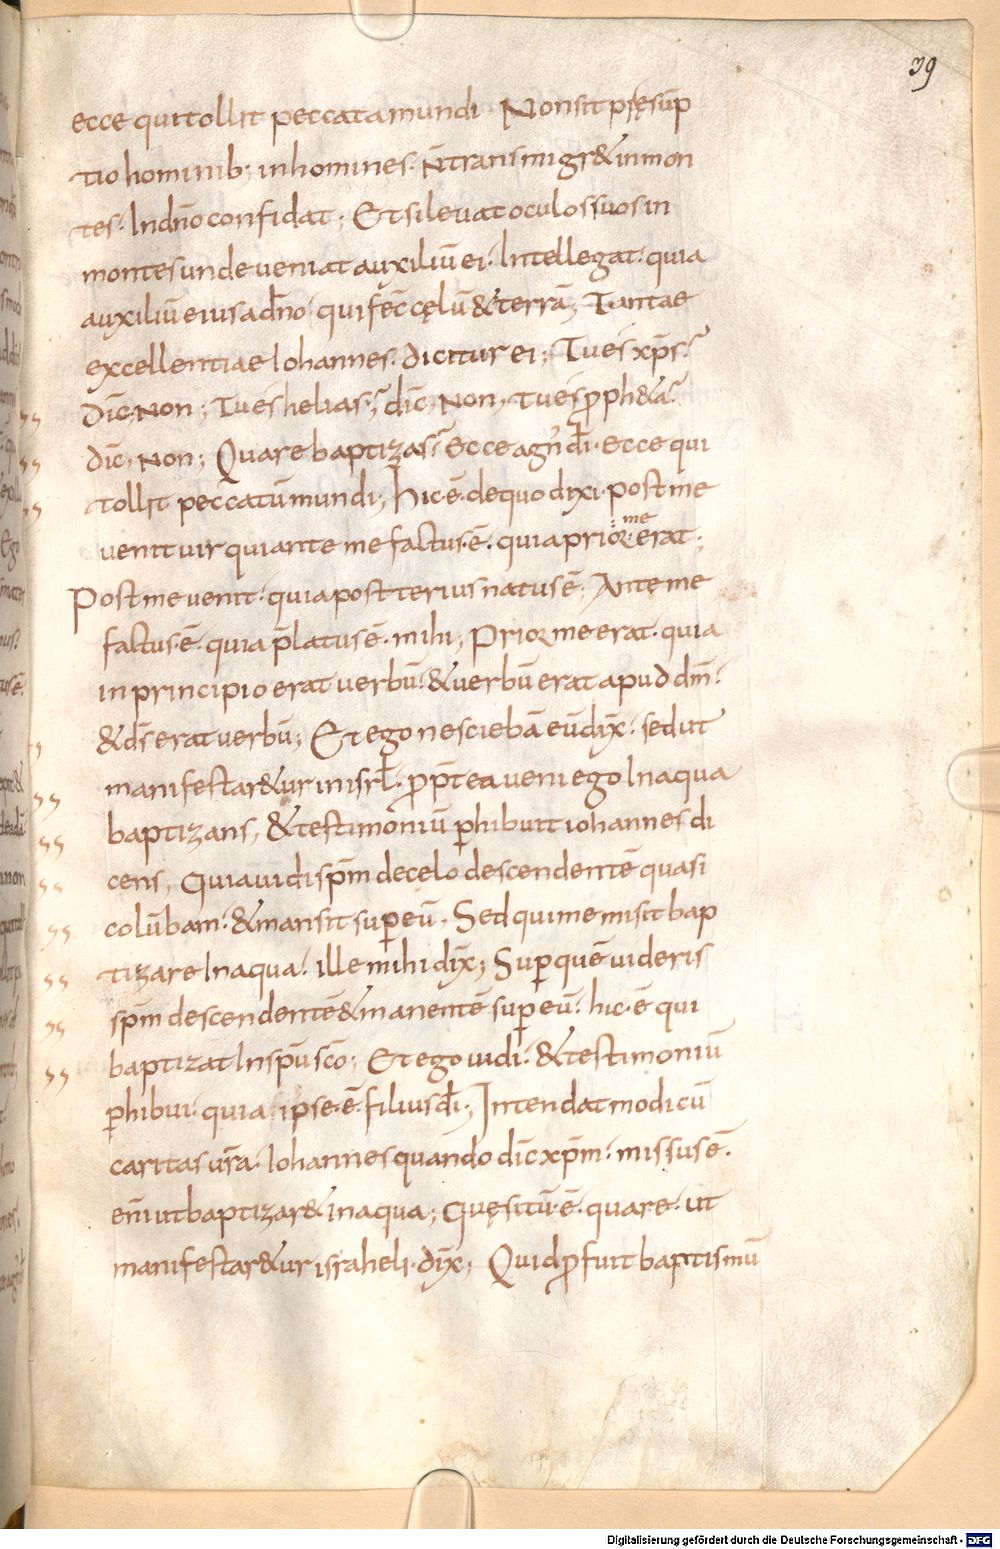 39
ecce qui tollit peccata mundi. Non sit pręsūp
tio hominib; in homines. N̄ transmigr& in mon
tes. In dn̄o confidat; Et si levat oculos suos in
montes unde veniat auxiliū ei. Intellegat. quia
auxiliū eius a dn̄o. qui fec̄ cęlū & terrā; Tantae
excellentiae Iohannes. dicitur ei; Tu es xp̄s?
Dic̄, Non; Tu es helias? dic̄, Non, tu es ꝓph&a?
dic̄, Non; Quare baptizas? Ecce agn' dī. Ecce qui
tollit peccatū mundi; Hic. ē. de quo dixi. post me
venit vir qui ante me factus. ē. quia prior me erat;
Post me venit. quia posterius natus ē. Ante me
factus. ē. quia p̄latus ē. mihi; Prior me erat. quia
in principio erat verbū. & verbū erat apud dm̄.
& ds̄ erat verbū; Et ego nesciebā eū dix̄. sed ut
manifestar&ur in isrl̄. ꝓpt̄ea veni ego In aqua
baptizans, & testimoniū ꝑhibuit iohannes di
cens, Quia vidi sp̄m de celo descendentē quasi
colūbam. & mansit suꝑ eū. Sed qui me misit bap
tizare In aqua. ille mihi dix̄; Suꝑ quē videris
sp̄m descendentē & manentē suꝑ eū. hic. ē qui
baptizat In spū scō; Et ego vidi. & testimoniū
ꝑhibui. quia ipse. ē. filius dī; Intendat modicū
caritas vr̄a. Iohannes quando dic̄ xp̄m. missus ē.
eni̅ ut baptizar& in aqua; Quęsitū. ē. quare. ut
manifestar&ur israheli. dix̄; Quid ꝓfuit baptismū
Digitalisierung gefördert durch die Deutsche Forschungsgemeinschaft - DFG